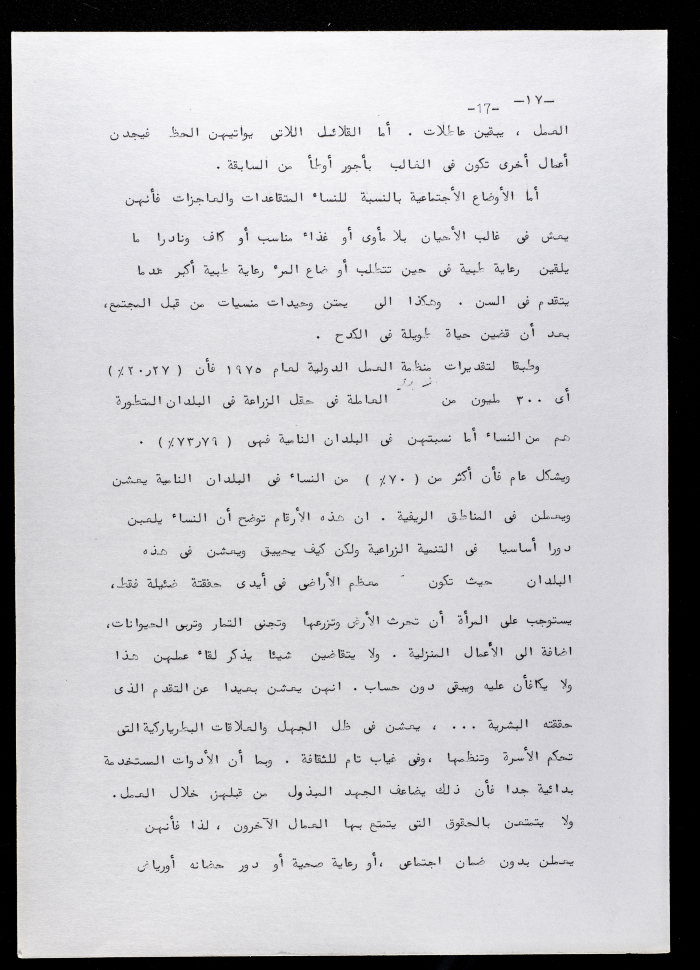 -١٧-
-17-
العمل ، يبقين عاطلات . أما القلائل اللاتى يواتيهن الحظ فيجدن
أعمال أخرى تكون فى الغالب بأجور أوطأ من السابقة .
أما الأوضاع الأجتماعية بالنسبة للنساء المتقاعدات والعاجزات فأنهن
يعش فى غالب الأحيان بلا مأوى أو غذاء مناسب أو كاف ونادرا ما
يلقين رعاية طبية فى حين تتطلب أوضاع المرء رعاية طبية أكبر عدما
يتقدم فى السن . وهكذا الى يمتن وحيدات منسيات من قبل المجتمع،
بعد أن قضين حياة طويلة فى الكدح .
وطبقا لتقديرات منظمة العمل الدولية لعام ١٩٧٥ فأن ( ٢٠٫٢٧٪)
أى ٣٠٠ مليون من العاملة فى حقل الزراعة فى البلدان المتطورة
هم من النساء أما نسبتهن فى البلدان النامية فهى ( ٧٣٫٧٩٪) .
وبشكل عام فأن أكثر من ( ٧٠٪ ) من النساء فى البلدان النامية يعشن
ويعملن فى المناطق الريفية . ان هذه الأرقام توضح أن النساء يلعبن
دورا أساسيا فى التنمية الزراعية ولكن كيف يحييق ويعشن فى هذه
البلدان حيث تكون معظم الأراضى فى أيدى حفقتة ضئيلة فقط،
يستوجب على المرأة أن تحرث الأرض وتزرعها وتجنى الثمار وتربى الحيوانات،
اضافة الى الأعمال المنزلية . ولا يتقاضين شيئا يذكر لقاء عملهن هذا
ولا يكافأن عليه ويبقى دون حساب . انهن يعشن بعيدا عن التقدم الذى
حققته البشرية ... ، يعشن فى ظل الجهل والعلاقات البطرياركية التى
تحكم الأسرة وتنظمها ،وفى غياب تام للثقافة . وبما أن الأدوات المستخدمة
بدائية جدا فأن ذلك يضاعف الجهد المبذول من قبلهن خلال العمل.
ولا يتمتعن بالحقوق التى يتمتع بها العمال الآخرون ، لذا فأنهن
يعملن بدون ضمان اجتماعى ،أو رعاية صحية أو دور حضانه أورياض